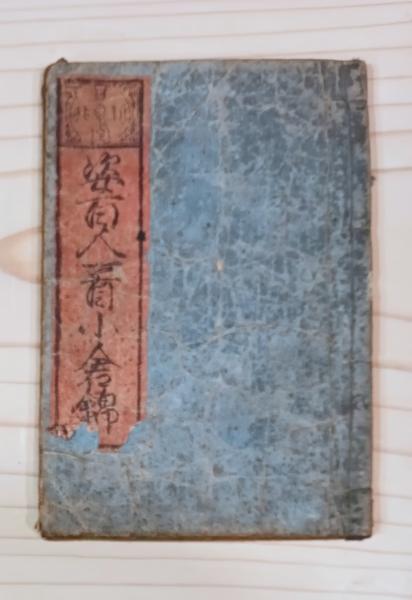 姿百人一首小倉錦